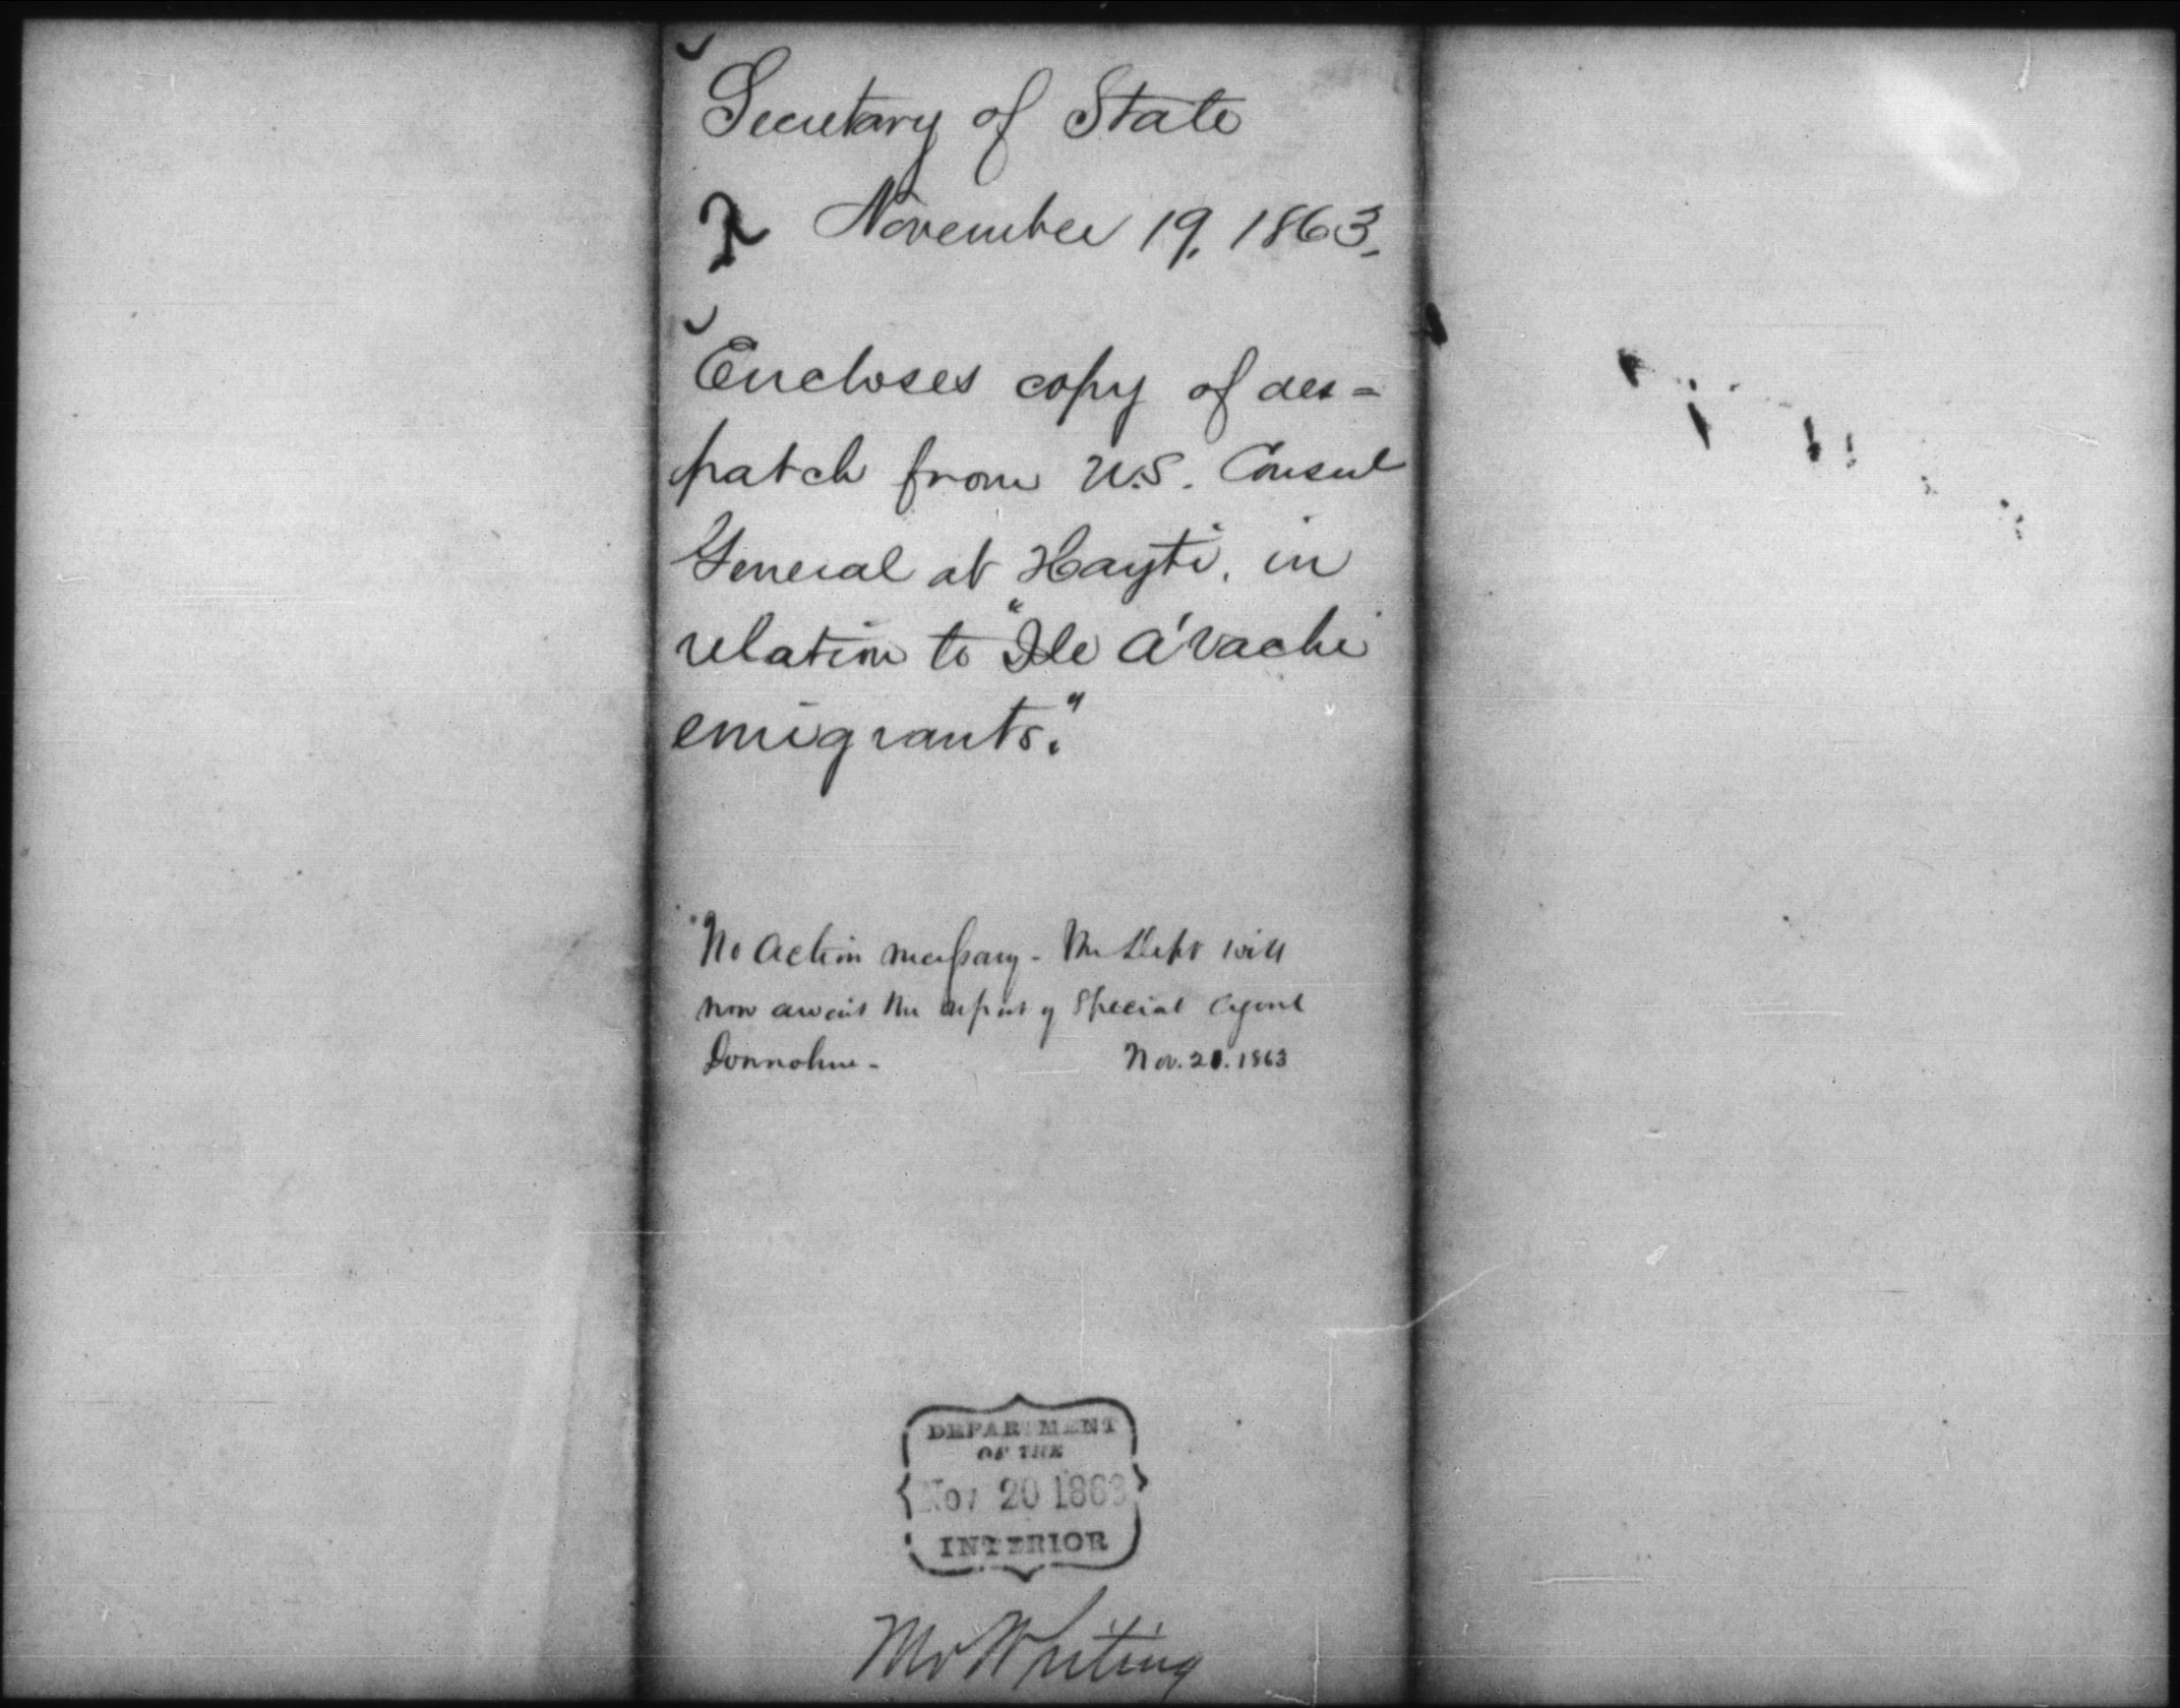 Secretary of State
November 19, 1863.
Encloses copy of des=
patch from U.S. Consul
General at Hayti, in
relation to "Ile A'Vache
emigrants."
No action necessary - The Dept will
now await the report of Special Agent
Donnohue - Nov. 20. 1863
DEPARTMENT
OF THE
Nov 20 1863
INTERIOR
Mr Whiting